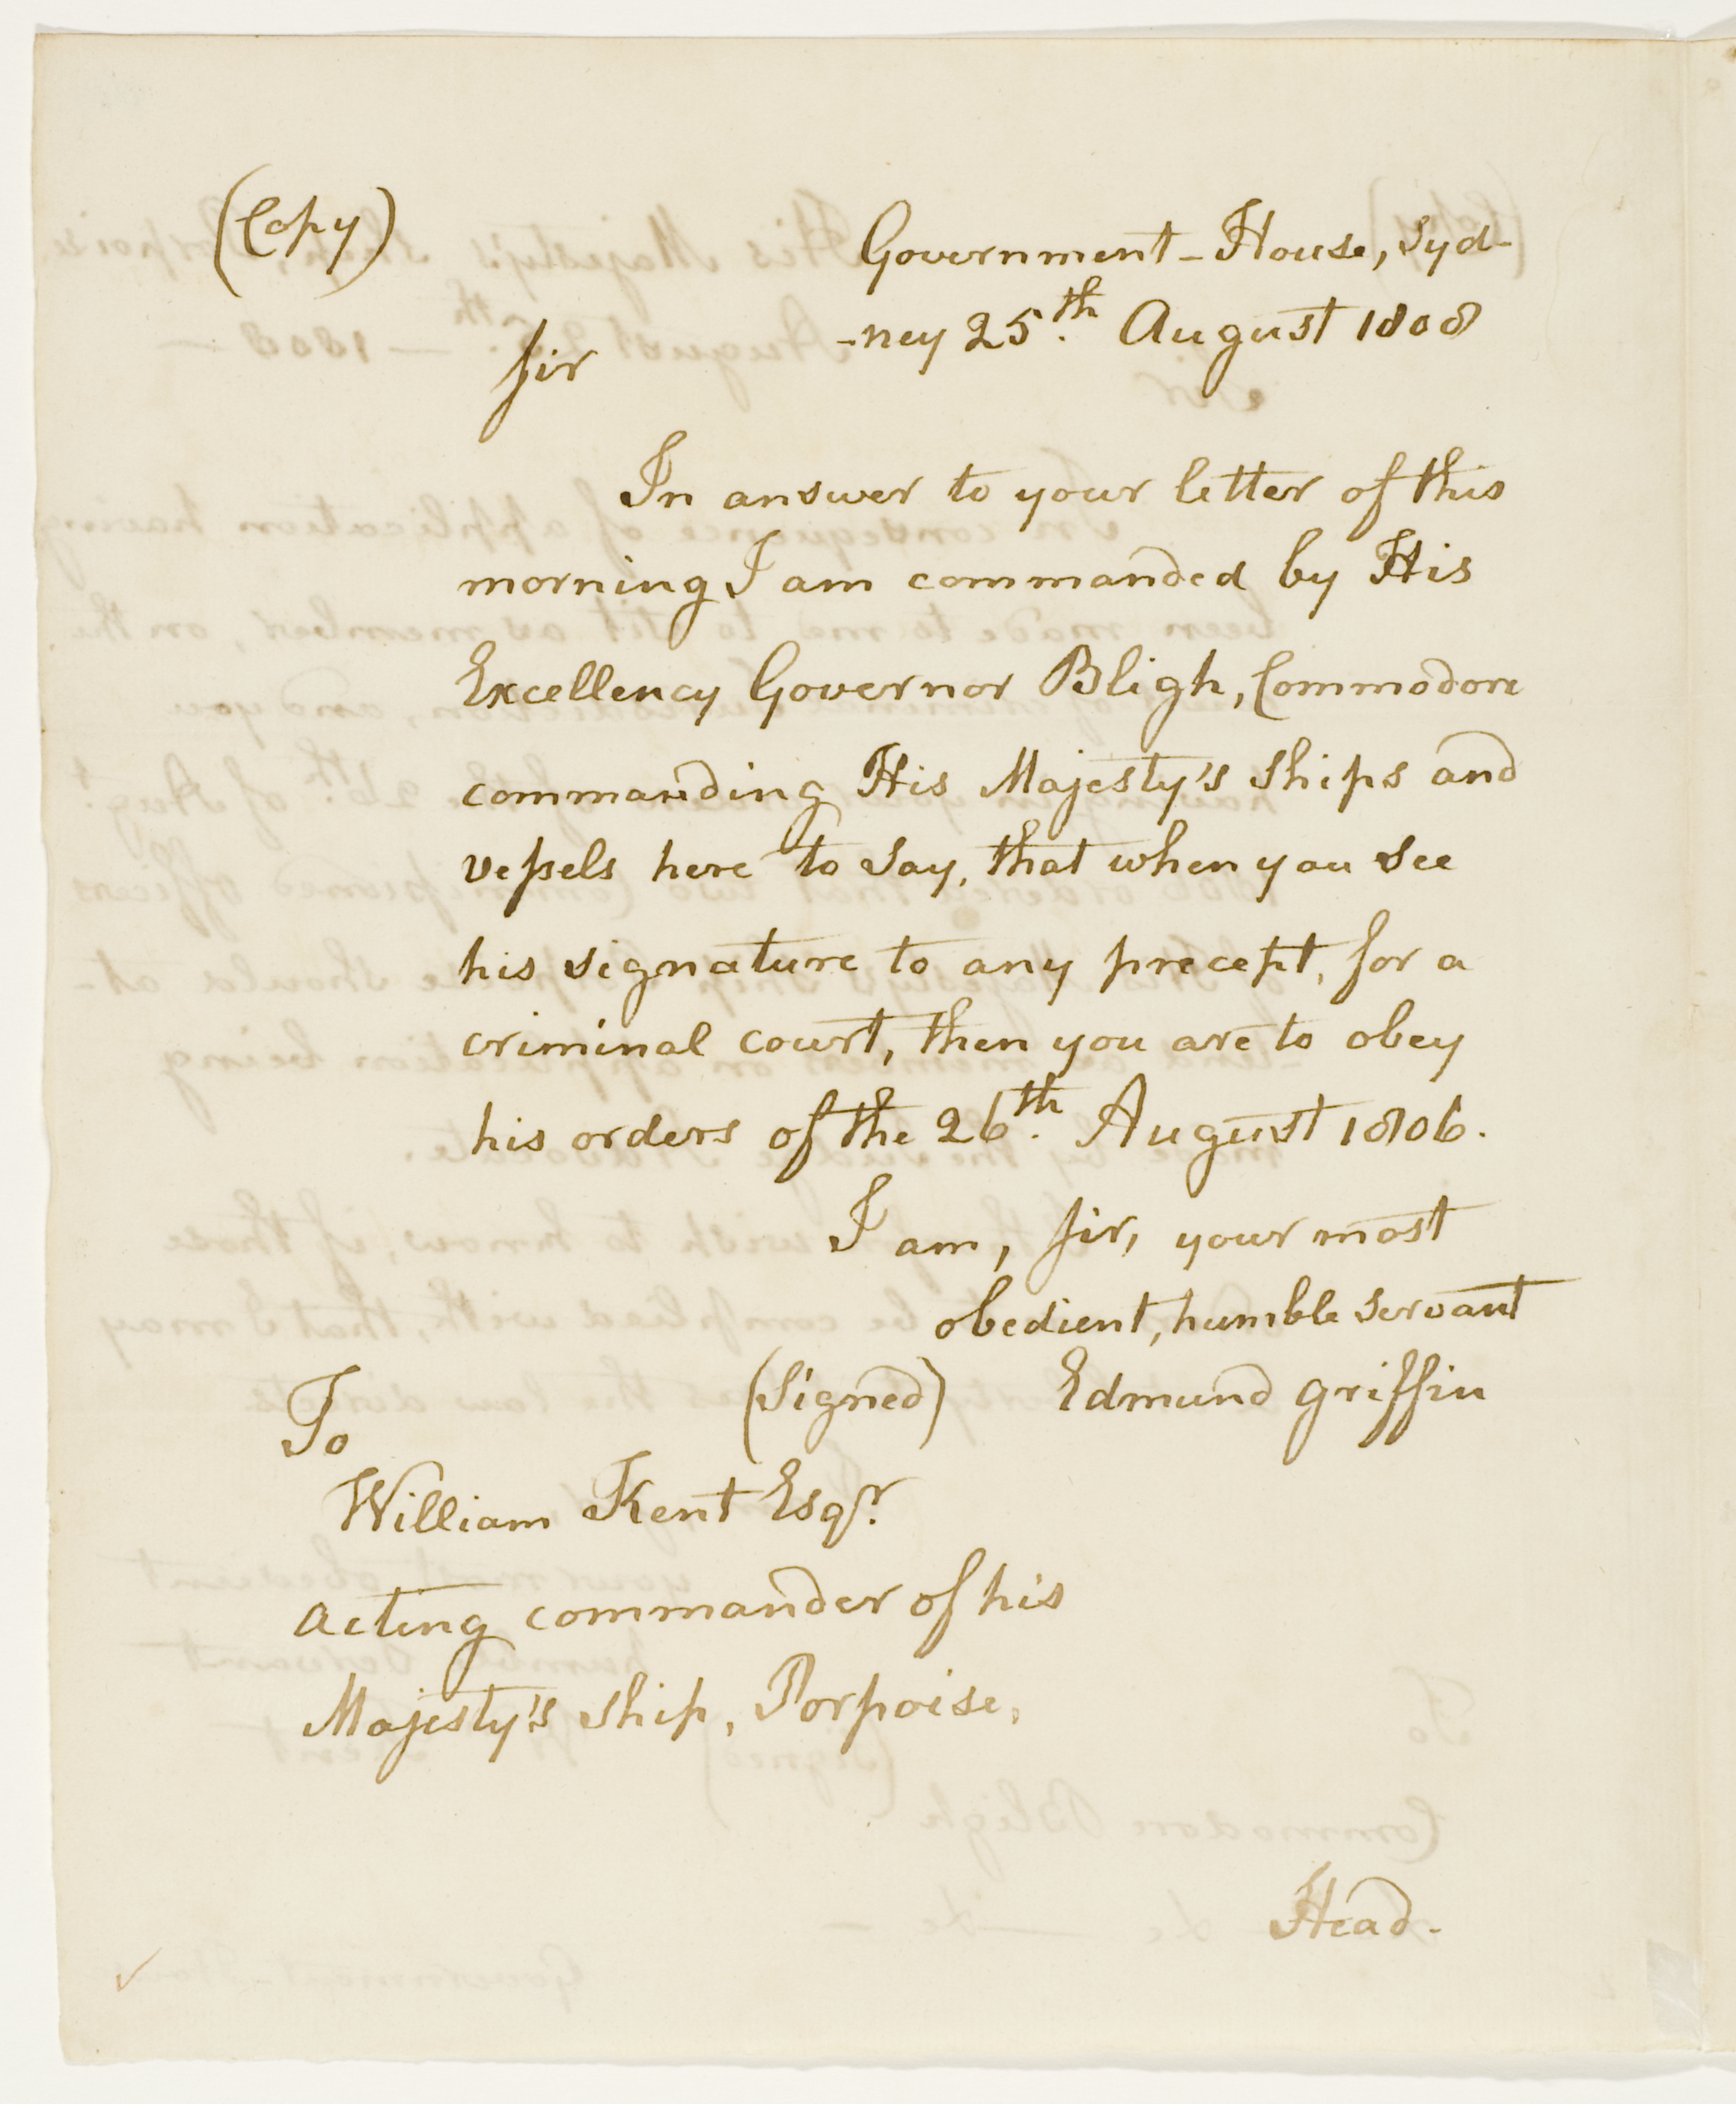 (Copy)
Government-House, Syd-
-ney 25th. August 1808
Sir
In answer to your letter of this
morning I am commanded by His
Excellency Governor Bligh, Commodore
commanding His Majesty's Ships and
vessels here to say, that when you see
his signature to any precept, for a
criminal court, then you are to obey
his orders of the 26th. August 1806.
I am, Sir, your most
obedient, humble servant
(Signed) Edmund Griffin
To
William Kent Esqr.
acting commander of his
Majesty's Ship, Porpoise,
Head-